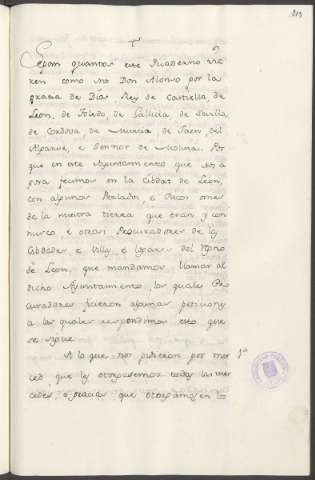 213
Sepan quantos este Quaderno vie
ren como nos Don Alonso por la
gracia de Dios, Rey de Castiella, de
Leon, de Toledo, de Gallicia, de Sevilla,
de Cordova, de Murcia, de Jaen, del
Algarve, e Sennor de Molina. Por
que en este Ayuntamiento que nos a
gora fecimos en la Cibdat de Leon,
con algunos Perlados, e Ricos omes
de la nuestra tierra que eran y con
nusco, e otrosi Procuradores de las
Cibdades e Villas e Logares del Regno
de Leon, que mandamos llamar al
dicho Ayuntamiento, los quales Pro
curadores ficieron algunas peticiones
a las quales respondimos esto que
se sigue.
A lo que nos pidieron por mer
ced, que les otorgasemos todas las mer
cedes, e gracias que otorgamos en las
1ª